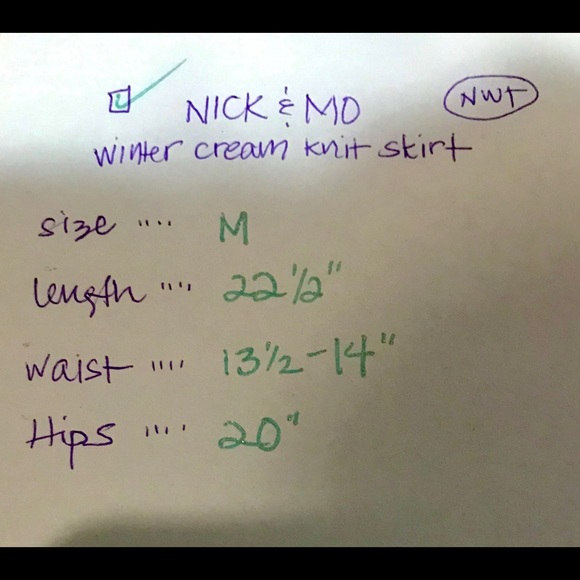 NICK & MO NWT
winter cream knit skirt
size .... M
length .... 22 1/2"
waist .... 13 1/2 - 14"
Hips .... 20"